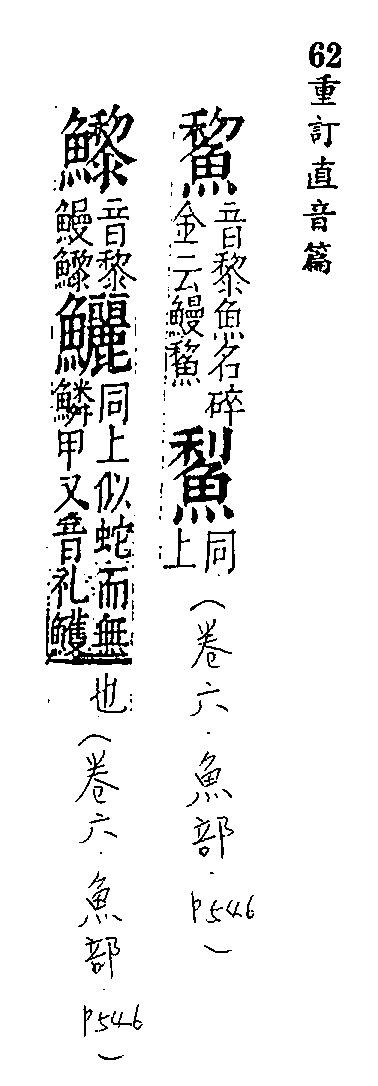 62重訂直音篇
鯬音黎魚名碎金云鰻鯬䱘同上(卷六.魚部.p546)
音黎鰻鱺同上似蛇而無鱗甲又音礼鱯也(卷六.魚部.p546)